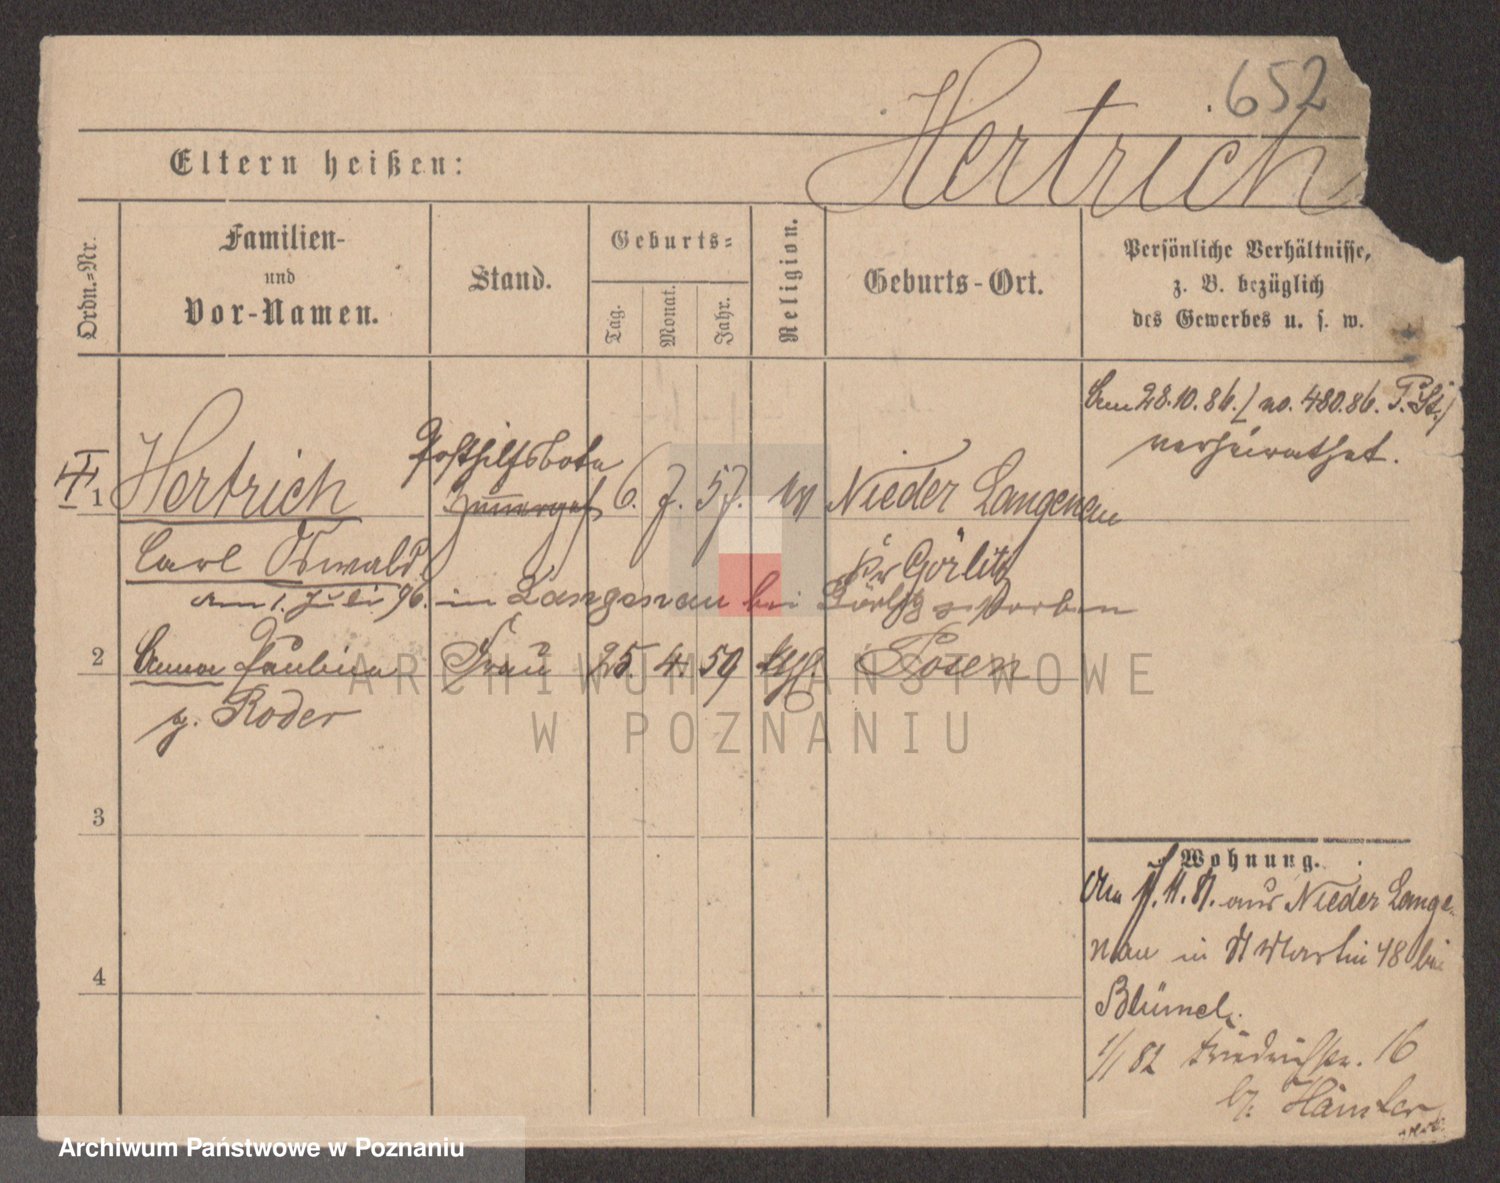 652
Hertrich
Eltern heißen:
Ordn.-Nr.
Familien-
und
Vor-Namen.
Stand.
Geburts-
Tag.
Monat.
Jahr.
Religion.
Geburts-Ort.
Persönliche Verhältnisse,
z. B. bezüglich
des Gewerbes u. s. w.
Am 28.10.86. / no. 480.86. P. St. /
verheirathet.
1 Hertrich Posthilfsbote 6. 7. 57. ev Nieder Langenau
Carl Oswald Görlitz
am 1. Juli 96. in Langenau bei Görlitz verstorben
2 Anna Paulina Frau 25. 4. 59 Posen
g. Roder
3
4
Wohnung.
aus Nieder Lange-
nau in St Martin 48 bei
Blümel.
1/1 82 Friedrichstr. 16
bei
ARCHIWUM PAŃSTWOWE
W POZNANIU
Archiwum Państwowe w Poznaniu